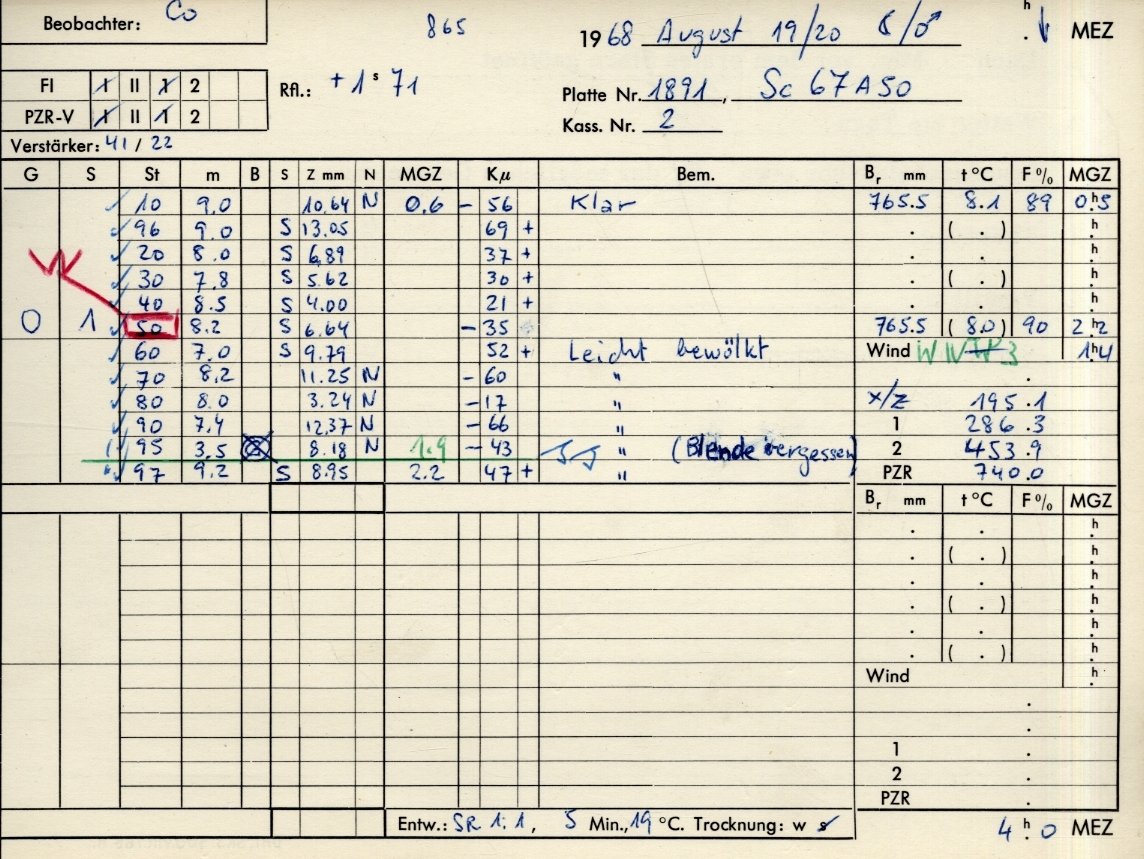 Beobachter: Co
865
1968 August 19/20 ☾/♂
h . ↓ MEZ
FI I II 1 2
Rfl.: +1 s 71
PZR-V I II 1 2
Platte Nr. 1891, Sc 67A50
Kass. Nr. 2
Verstärker: 41 / 22
G S St m B S Z mm N MGZ Kμ Bem. Br mm t °C F % MGZ
10 9.0 10.64 N 0.6 - 56 Klar 765.5 8.1 89 0 h 5
96 9.0 S 13.05 69 + . ( . ) h .
20 8.0 S 6.89 37 + . . h .
30 7.8 S 5.62 30 + . ( . ) h .
40 8.5 S 4.00 21 + . . h .
0 1 50 8.2 S 6.64 - 35 765.5 (8.0) 90 2 h 2
60 7.0 S 9.79 52 + Leicht bewölkt Wind 1 h 4
70 8.2 11.25 N - 60 " .
80 8.0 3.24 N - 17 " x/z 195.1
90 7.4 12.37 N - 66 " 1 286.3
95 3.5 8.18 N 1.9 - 43 " (Blende vergessen) 2 453.9
97 9.2 S 8.95 2.2 47 + " PZR 740.0
Br mm t °C F % MGZ
. . h .
. ( . ) h .
. . h .
. ( . ) h .
. . h .
. ( . ) h .
Wind h .
.
.
1 .
2 .
PZR .
Entw.: SR 1:1, 5 Min., 19 °C. Trocknung: w s
4 h 0 MEZ